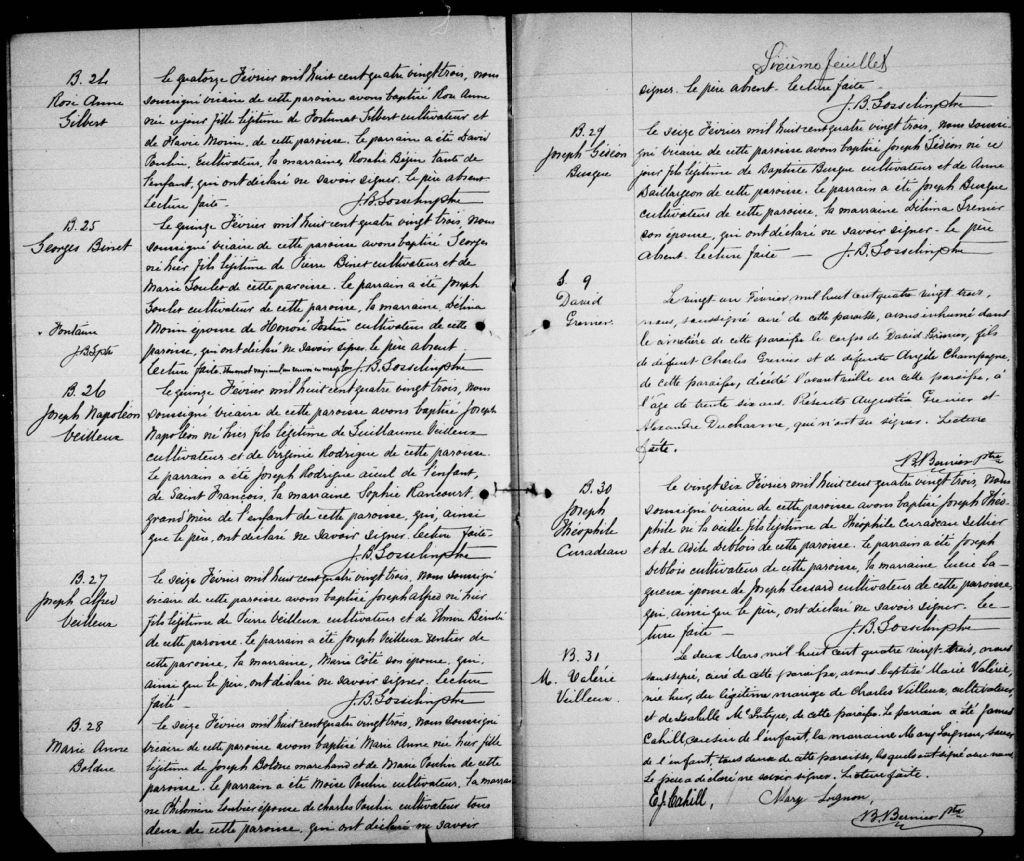 B. 24
Rose Anne
Gilbert
Le quatorze Février mil huit cent quatre vingt trois, nous
soussigné vicaire de cette paroisse avons baptisé Rose Anne
née ce jour fille légitime de Fortunat Gilbert cultivateur et
de Flavie Morin, de cette paroisse. Le parrain a été David
Poulin, Cultivateur, la marraine, Rosalie Bégin tante de
l'enfant, qui ont déclaré ne savoir signer. Le père absent
Lecture faite. J.B. Gosselin, ptre
B. 25
Georges Binet
Le quinze Février mil huit cent quatre vingt trois, nous
soussigné vicaire de cette paroisse avons baptisé Georges
né hier fils légitime de Pierre Binet cultivateur et de
Marie de cette paroisse. Le parrain a été Joseph
cultivateur de cette paroisse, la marraine, Délina
Morin épouse de Honoré Fortin cultivateur de cette
paroisse, qui ont déclaré ne savoir signer, le père absent.
Lecture faite. J.B. Gosselin, ptre
Fontaine
J.B.G ptre
B. 26
Joseph Napoléon
Veilleux
Le quinze Février mil huit cent quatre vingt trois, nous
soussigné vicaire de cette paroisse avons baptisé Joseph
Napoléon né hier fils légitime de Guillaume Veilleux
cultivateur et de Virginie Rodrigue de cette paroisse.
Le parrain a été Joseph Rodrigue aïeul de l'enfant,
de Saint François, la marraine Sophie Rancourt,
grand'mère de l'enfant de cette paroisse, qui, ainsi
que le père, ont déclaré ne savoir signer. Lecture faite.
J.B. Gosselin, ptre
B. 27
Joseph Alfred
Veilleux
Le seize Février mil huit cent quatre vingt trois, nous soussigné
vicaire de cette paroisse avons baptisé Joseph Alfred né hier
fils légitime de Pierre Veilleux cultivateur et de
de cette paroisse. Le parrain a été Joseph Veilleux rentier de
cette paroisse, la marraine, Marie Côté son épouse, qui,
ainsi que le père, ont déclaré ne savoir signer. Lecture
faite. J.B. Gosselin, ptre
B. 28
Marie Anne
Bolduc
Le seize Février mil huit cent quatre vingt trois, nous soussigné
vicaire de cette paroisse avons baptisé Marie Anne née hier, fille
légitime de Joseph Bolduc marchand et de Marie Poulin de cette
paroisse. Le parrain a été Moïse Poulin cultivateur, la marrai
ne Philomène Cloutier épouse de Charles Poulin cultivateur tous
deux de cette paroisse, qui ont déclaré ne savoir
Sixième feuillet
signer. Le père absent. Lecture faite
J.B. Gosselin, ptre
B. 29
Joseph Gédéon
Busque
Le seize Février mil huit cent quatre vingt trois, nous soussi-
gné vicaire de cette paroisse avons baptisé Joseph Gédéon né ce
jour fils légitime de Baptiste Busque cultivateur et de Anne
Baillargeon de cette paroisse. Le parrain a été Joseph Busque
cultivateur de cette paroisse, la marraine Délima Grenier
son épouse, qui ont déclaré ne savoir signer. Le père
absent. Lecture faite — J.B. Gosselin, ptre
S. 9
David
Grenier
Le vingt un Février, mil huit cent quatre vingt trois,
nous, soussigné curé de cette paroisse, avons inhumé dans
le cimetière de cette paroisse le corps de David Grenier, fils
de défunt Charles Grenier et de défunte Angèle Champagne,
de cette paroisse, décédé l'avant veille en cette paroisse, à
l'âge de trente six ans. Présents Augustin Grenier et
Alexandre Ducharme, qui n'ont su signer. Lecture
faite.
B. Bernier Ptre
B. 30
Joseph
Théophile
Curadeau
Le vingt six Février mil huit cent quatre vingt trois, nous
soussigné vicaire de cette paroisse avons baptisé Joseph Théo-
phile né la veille fils légitime de Théophile Curadeau Sellier
et de Adèle Deblois de cette paroisse. Le parrain a été Joseph
Deblois cultivateur de cette paroisse, la marraine Lucie La-
gueux épouse de Joseph Lessard cultivateur de cette paroisse,
qui, ainsi que le père, ont déclaré ne savoir signer. Lec-
ture faite — J.B. Gosselin, ptre
B. 31
M. Valérie
Veilleux
Le deux Mars, mil huit cent quatre vingt-trois, nous
soussigné, curé de cette paroisse, avons baptisé Marie Valérie,
née hier, du légitime mariage de Charles Veilleux, cultivateur,
et de Isabelle McIntyre, de cette paroisse. Le parrain a été James
Cahill, cousin de l'enfant, la marraine Mary
de l'enfant, tous deux de cette paroisse, lesquels ont signé avec nous.
Le père a déclaré ne savoir signer. Lecture faite.
Cahill, Mary
B. Bernier Ptre